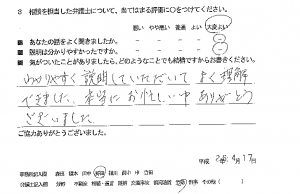 3 相談を担当した弁護士について、当てはまる評価に○をつけてください。
悪い やや悪い 普通 よい 大変よい
■ あなたの話をよく聞きましたか。
■ 説明は分かりやすかったですか。
■ 気がついたことがありましたら、どのようなことでも結構ですからお書きください。
わかりやすく説明していただいて よく理解
できました。本当にお忙しい中 ありがとう
ございました。
ご協力ありがとうございました。
平成 25年 4月17日